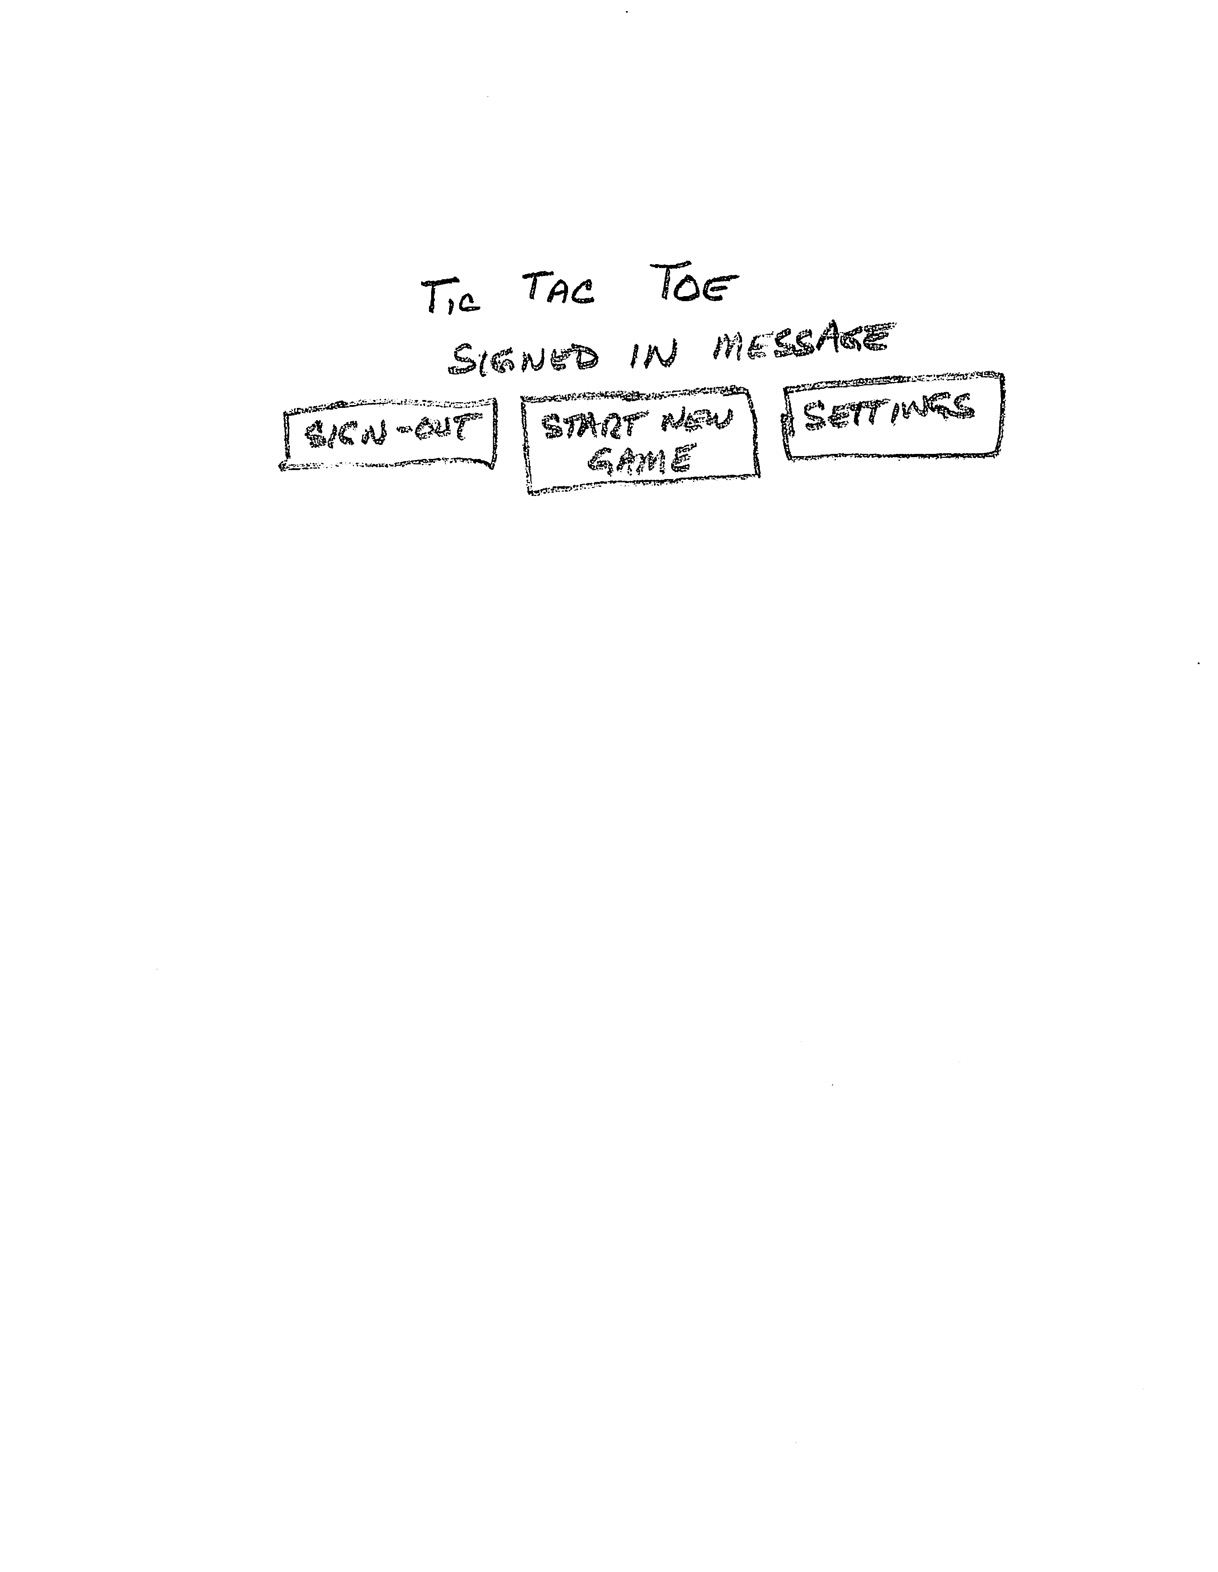 TIC TAC TOE
SIGNED IN MESSAGE
SIGN-OUT
START NEW
GAME
SETTINGS